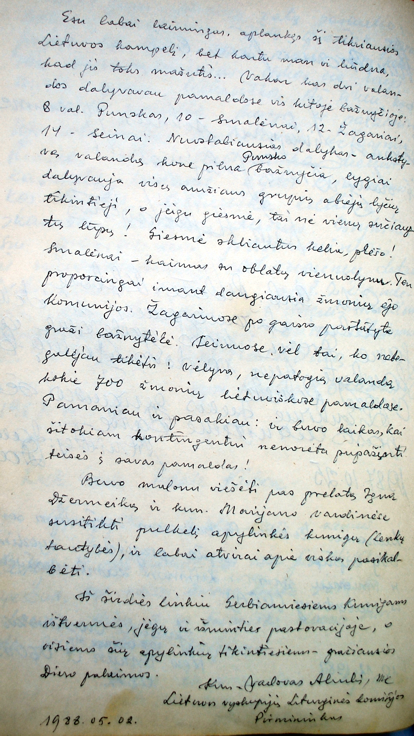 Esu labai laimingas, aplankęs šį tikriausios
Lietuvos kampelį, bet kartu man ir liūdna,
kad jis toks mažutis... Vakar kas dvi valan-
dos dalyvavau pamaldose vis kitoje bažnyčioje:
8 val. Punskas, 10 - Smalėnai, 12 - Žagariai,
14 - Seinai. Nuostabiausias dalykas - anksty-
vą valandą kone pilna Punsko bažnyčia, lygiai
dalyvauja visų amžiaus grupių abiejų lyčių
tikintieji, o jeigu giesmė, tai nė vienų sučiaup-
tų lūpų! Giesmė skliautus kelia, plėšo!
Smalėnai - kaimas su oblatų vienuolynu. Ten
proporcingai imant daugiausia žmonių ėjo
Komunijos. Žagariuose po gaisro puršatyta
graži bažnytėlė. Seinuose vėl tai, ko nesi-
galėjau tikėtis! Vėlyvą, nepatogią valandą
kokie 700 žmonių lietuviškose pamaldose.
Pamaniau ir pasakiau: ir buvo laikas, kai
šitokiam kontingentui nenorėta pripažinti
teisės į savas pamaldas!
Buvo malonu viešėti pas prelatą Igną
Dzermeiką ir kun. Marijono vardinėse
susitikti pulkelį apylinkės kunigų (lenkų
tautybės), ir labai atvirai apie viską pasikal-
bėti.
Iš širdies linkiu Gerbiamiesiems Kunigams
ištvermės, jėgų ir išminties pastovacijoje, o
visiems šių apylinkių tikintiesiems - gražiausios
Dievo palaimos.
Kun. Vaclovas Aliulis, MIC
Lietuvos vyskupijų Liturginės komisijos
Pirmininkas
1988.05.02.